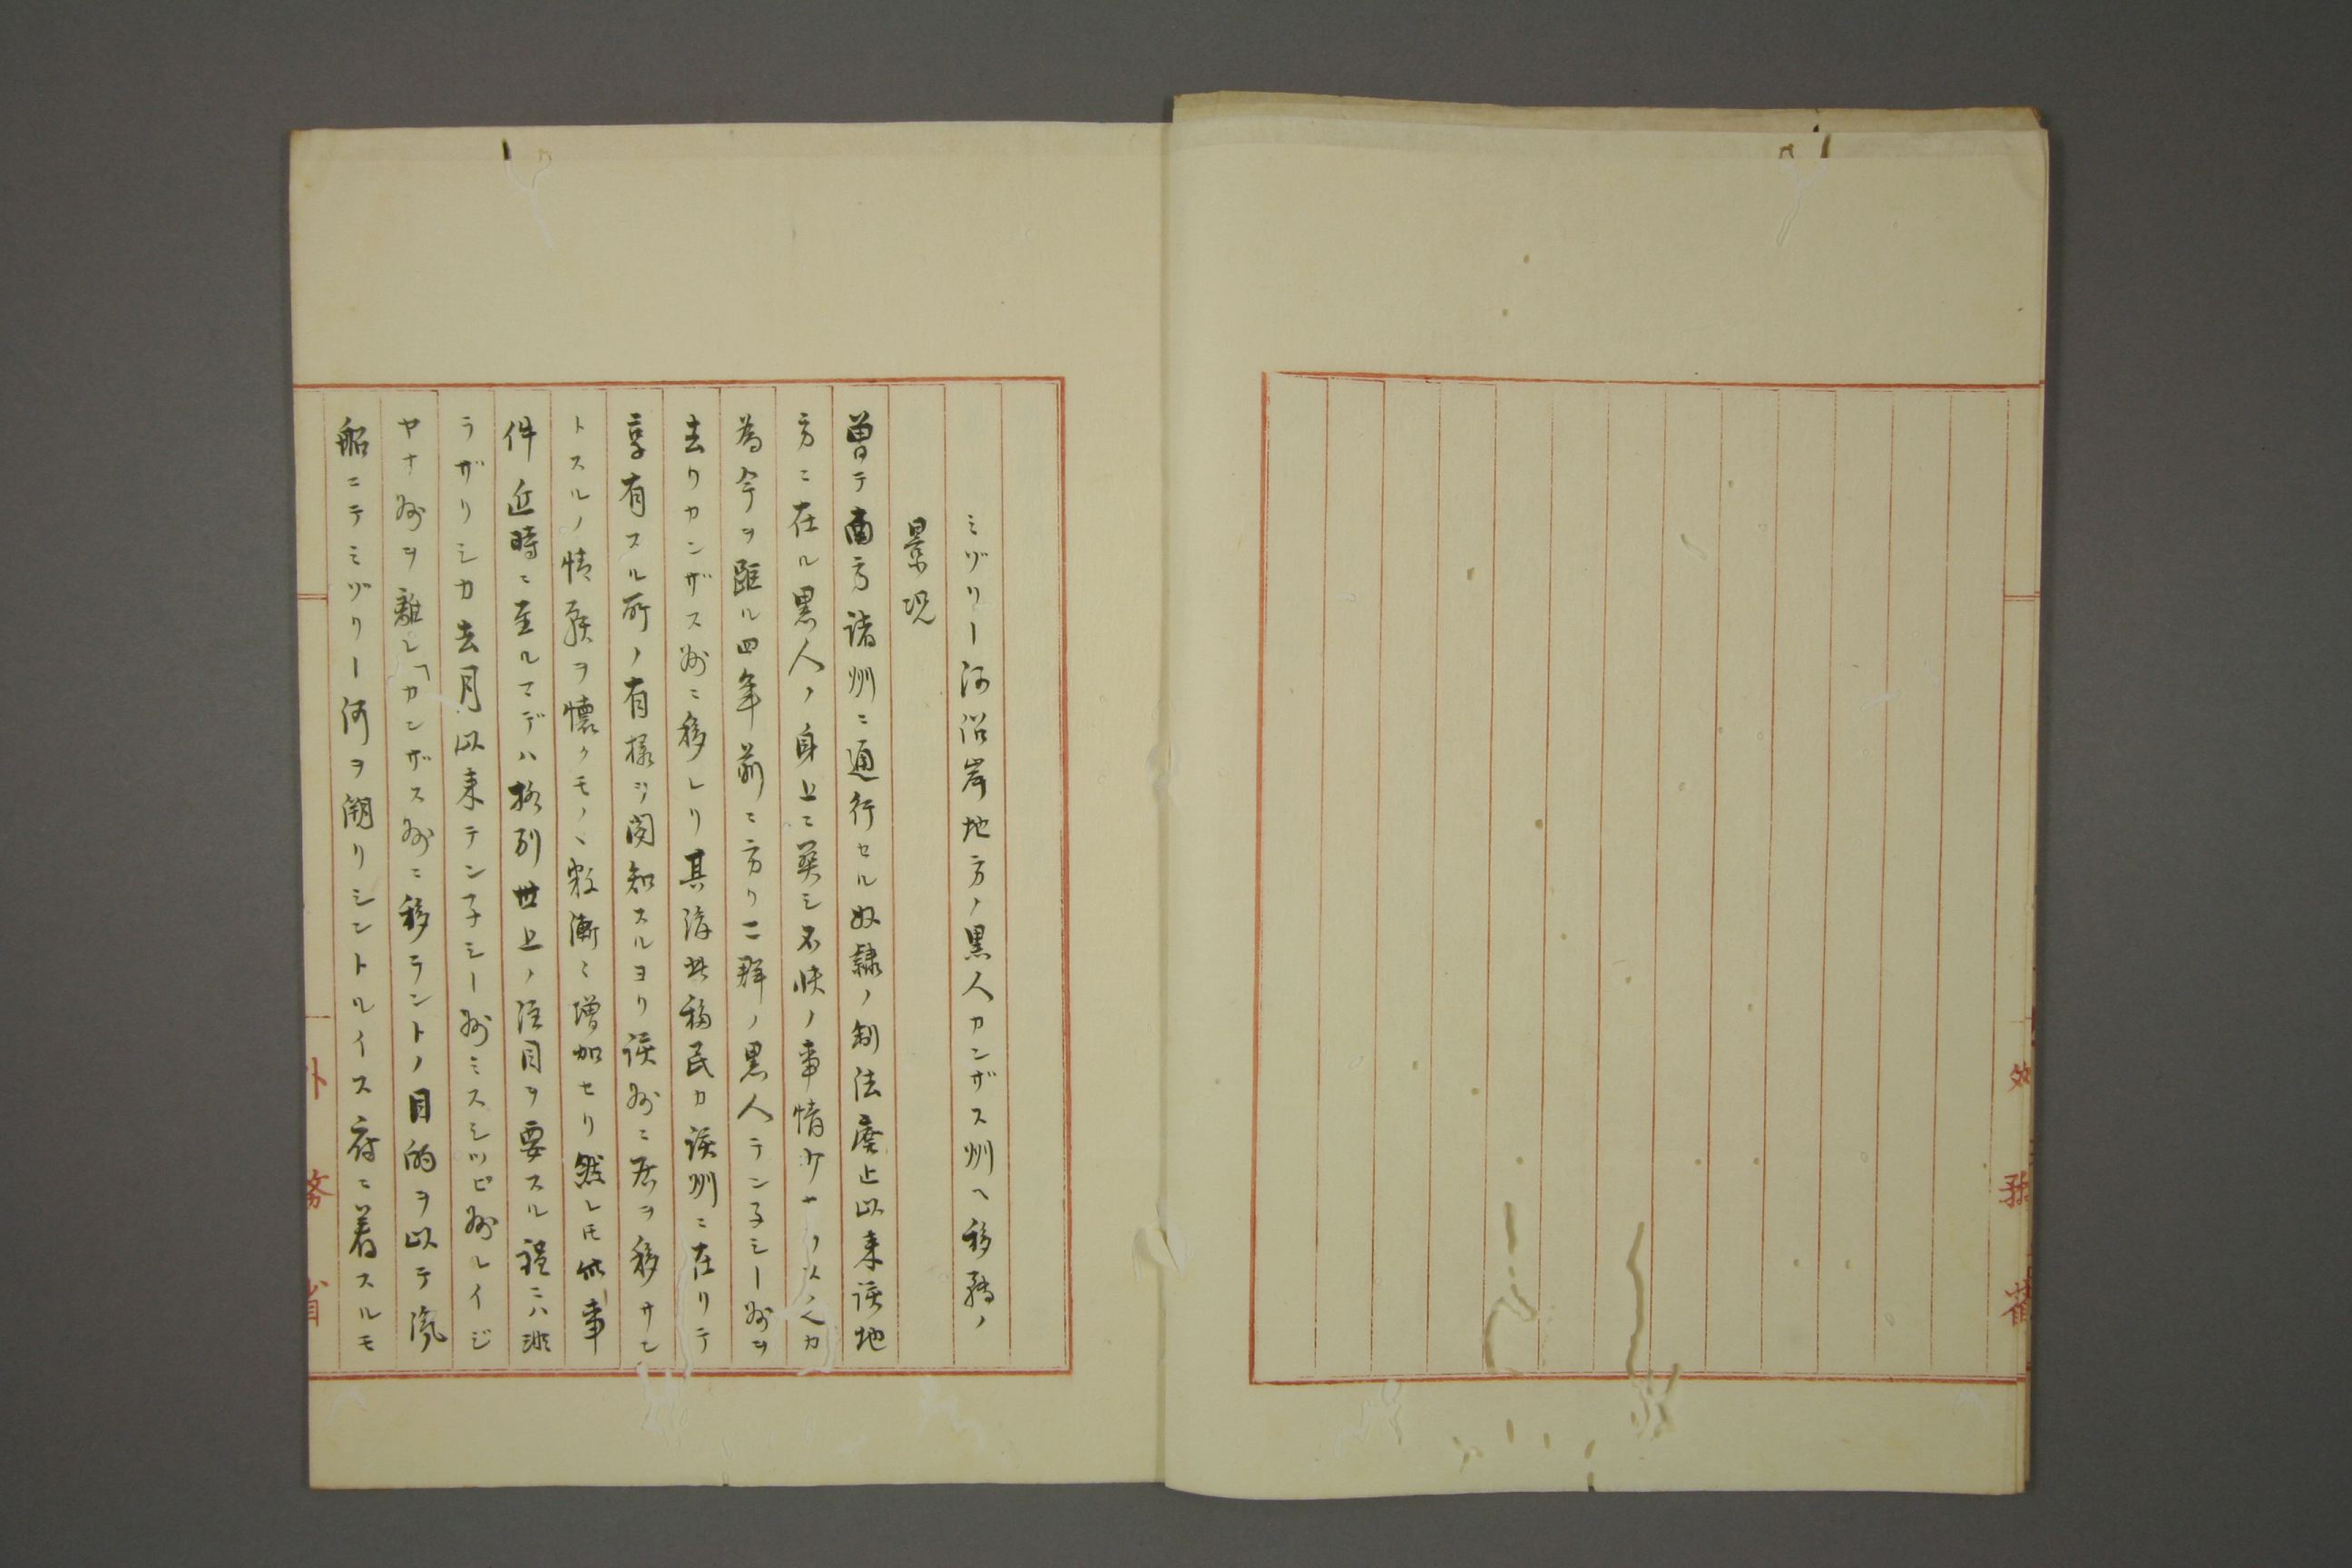 ミヅリー河沿岸地方ノ黒人カンザス州ヘ移轉ノ
景况
曽テ南方諸州ニ通行セル奴隷ノ制法廃止以来該地
方ニ在ル黒人ノ身上ニ關シ不快ノ事情少カラス之カ
為今ヲ距ル四年前ニ方リ一群ノ黒人テン子シー州ヲ
去リカンザス州ニ移レリ其後此移民カ該州ニ在リテ
享有スル所ノ有様ヲ聞知スルヨリ該州ニ居ヲ移サン
トスルノ情願ヲ懐クモノヽ数漸ニ増加セリ然レ𪜈此事
件近時ニ至ルマデハ格別世上ノ注目ヲ要スル程ニハ渉
ラザリシカ去月以来テン子シー州ミスシッピ州ルイジ
ヤナ州ヲ離レ「カンザス州ニ移ラントノ目的ヲ以テ滊
船ニテミヅリー河ヲ溯リシントルイス府ニ着スルモ
外務省
外務省